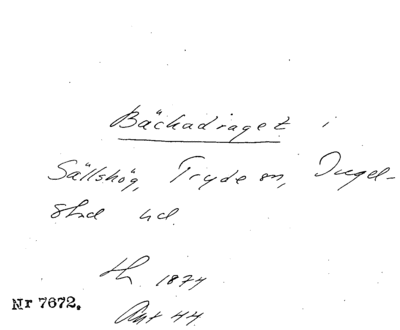 Bäckadraget i
Sällshög, Tryde sn, Ingel-
stad hd.
1874
Nr 7672.
Ant 44